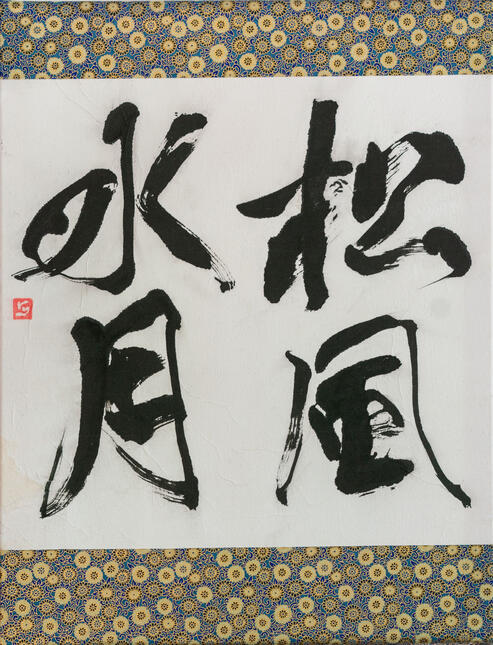 松風
水月